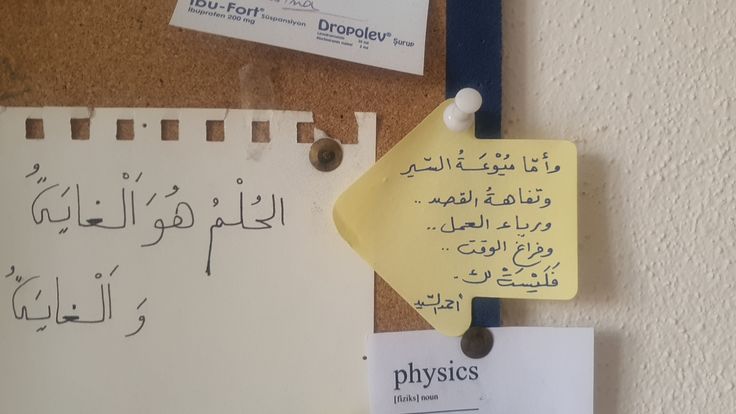 Ibu-Fort® Süspansiyon
Ibuprofen 200 mg
Dropolev® Şurup
الحُلْمُ هُوَ اَلْغايَةُ
وَ اَلْغايَةُ
وأمّا مُيُوْعَةُ السّير
وتفاهةُ القصد ..
ورياء العمل ..
وفراغ الوقت ..
فَلَيْسَتْ لك .
أحمد السّيد
physics
[fiziks] noun